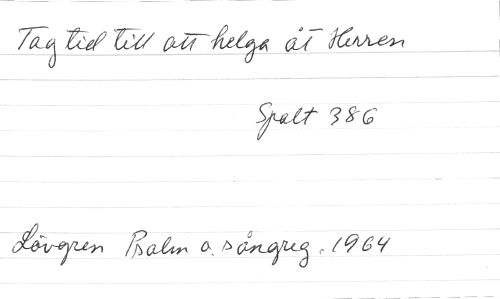 Tag tid till att helga åt Herren
Spalt 386
Lövgren Psalm o. sångreg. 1964